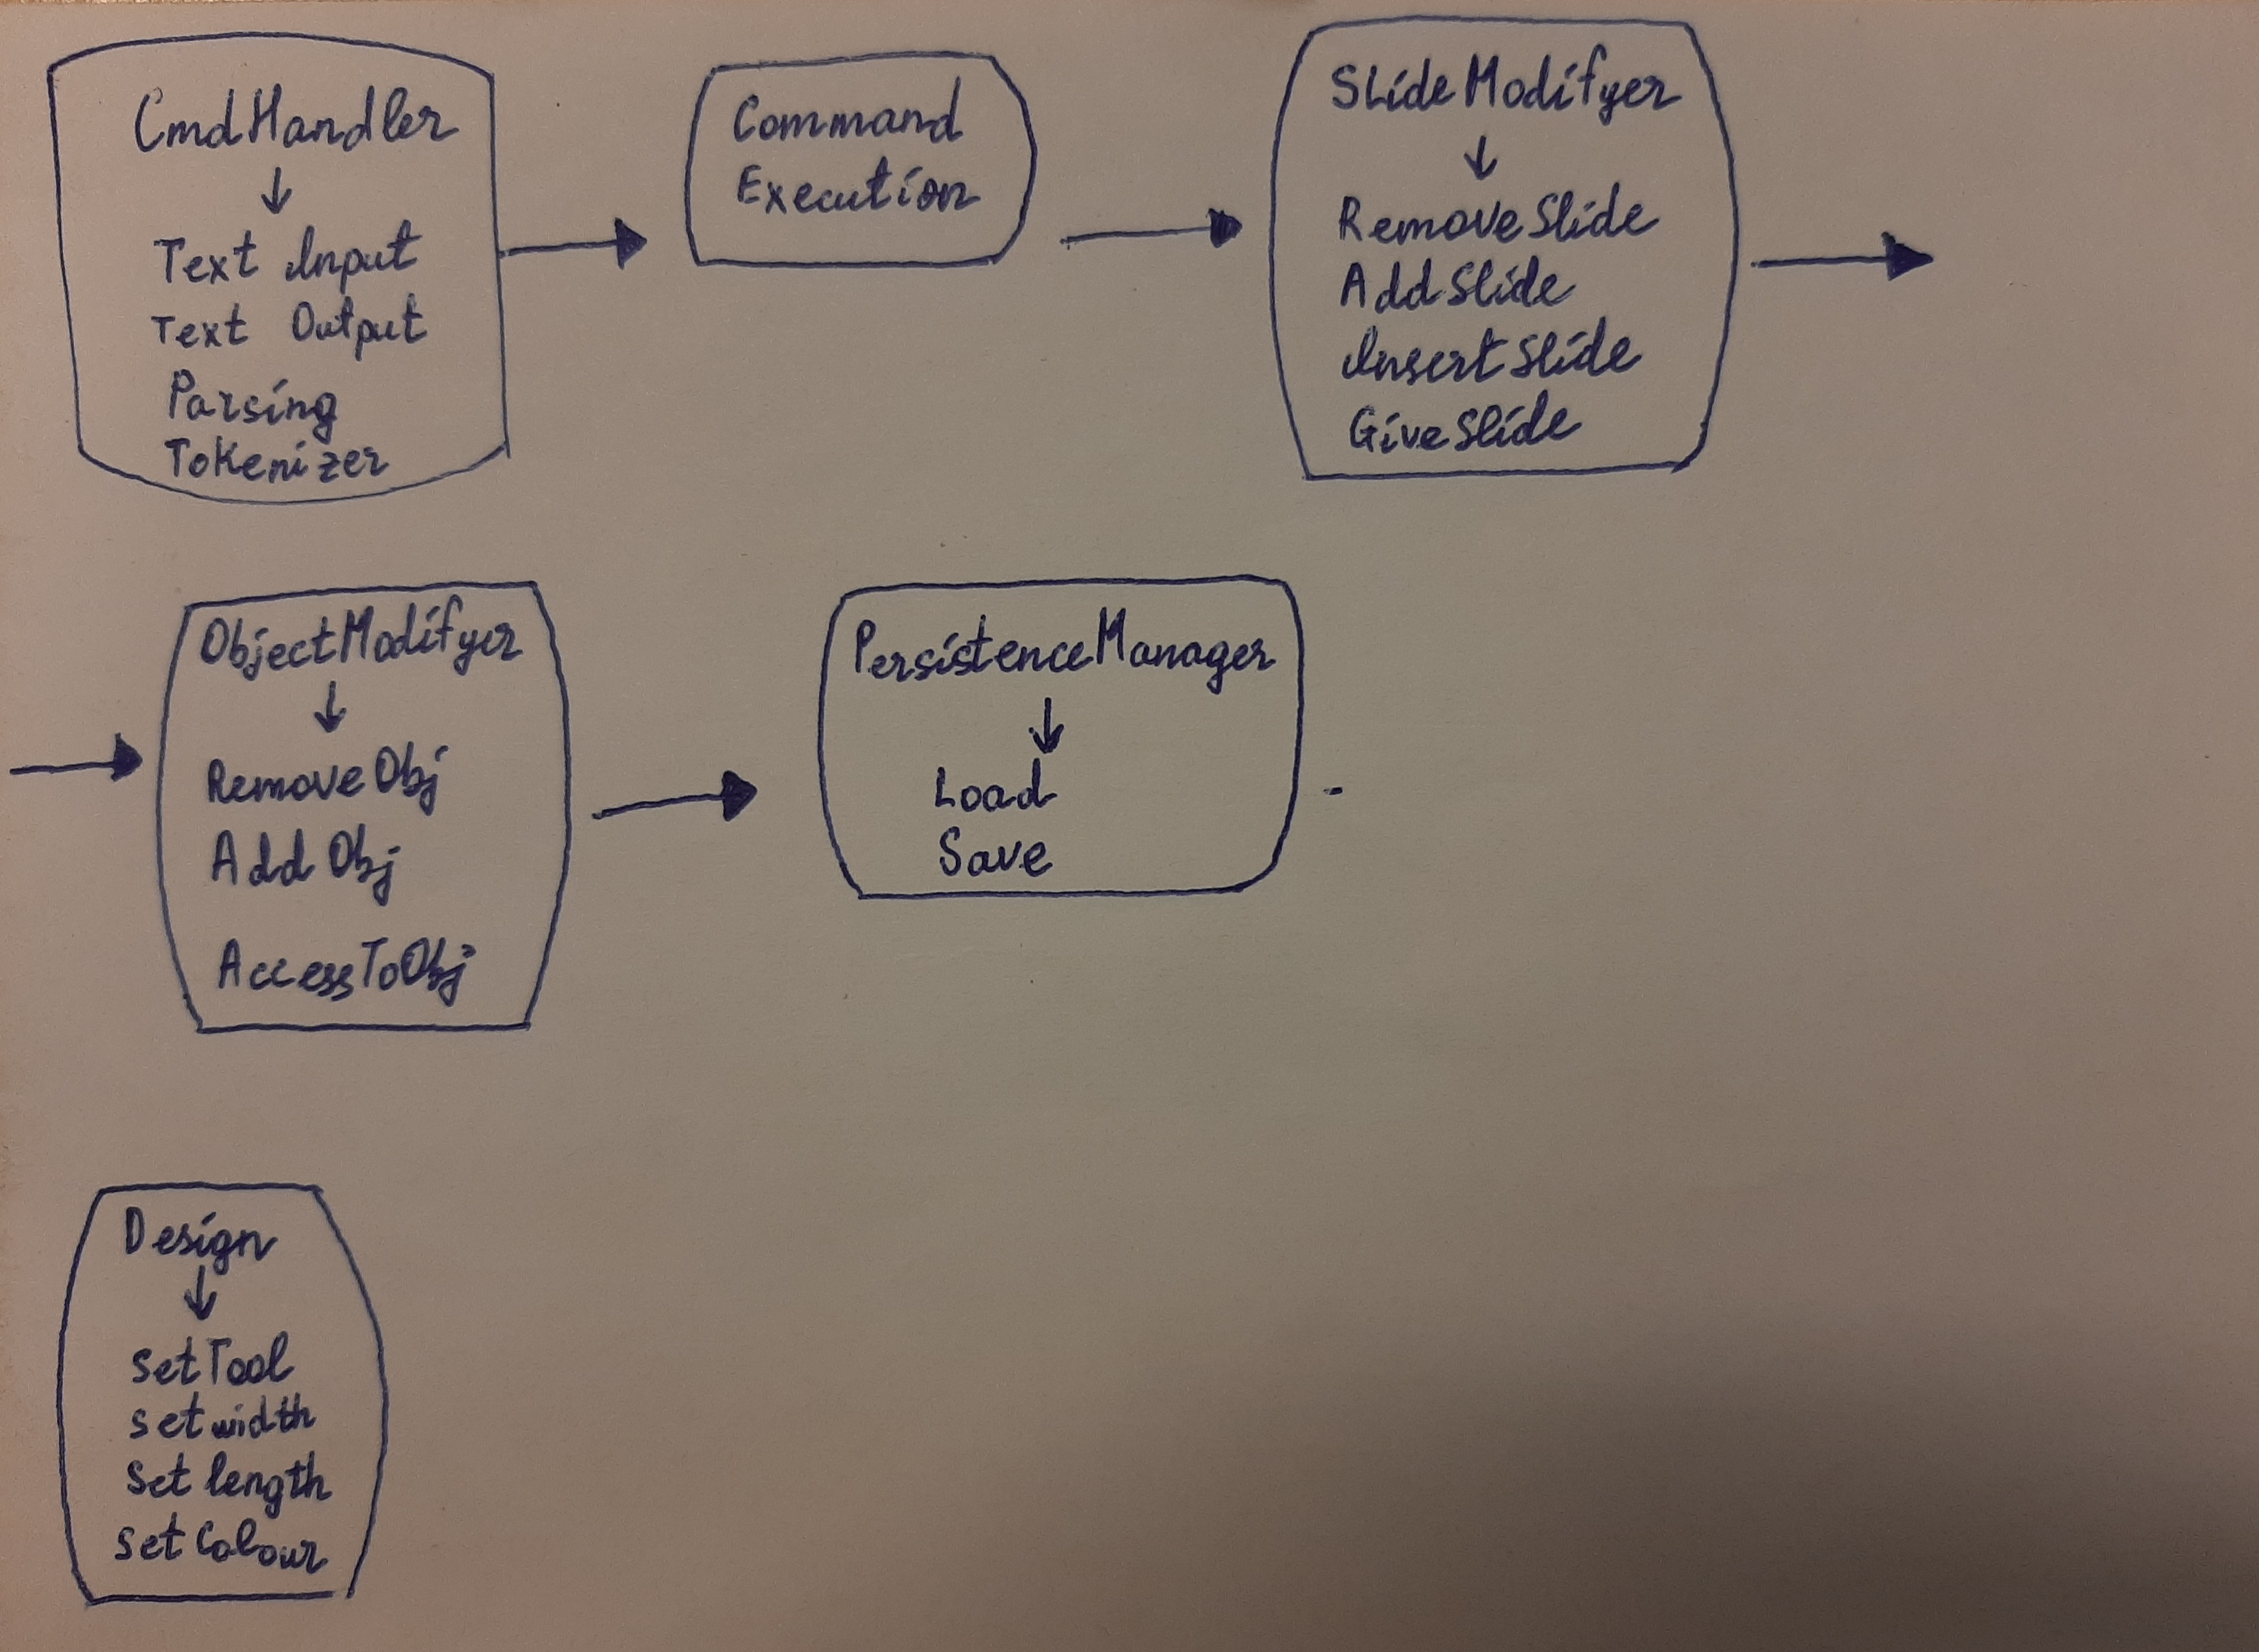 CmdHandler
Text Input
Text Output
Parsing
Tokenizer
Command
Execution
SlideModifyer
RemoveSlide
AddSlide
InsertSlide
GiveSlide
ObjectModifyer
RemoveObj
AddObj
AccessToObj
PersistenceManager
Load
Save
Design
setTool
setwidth
set length
setColour